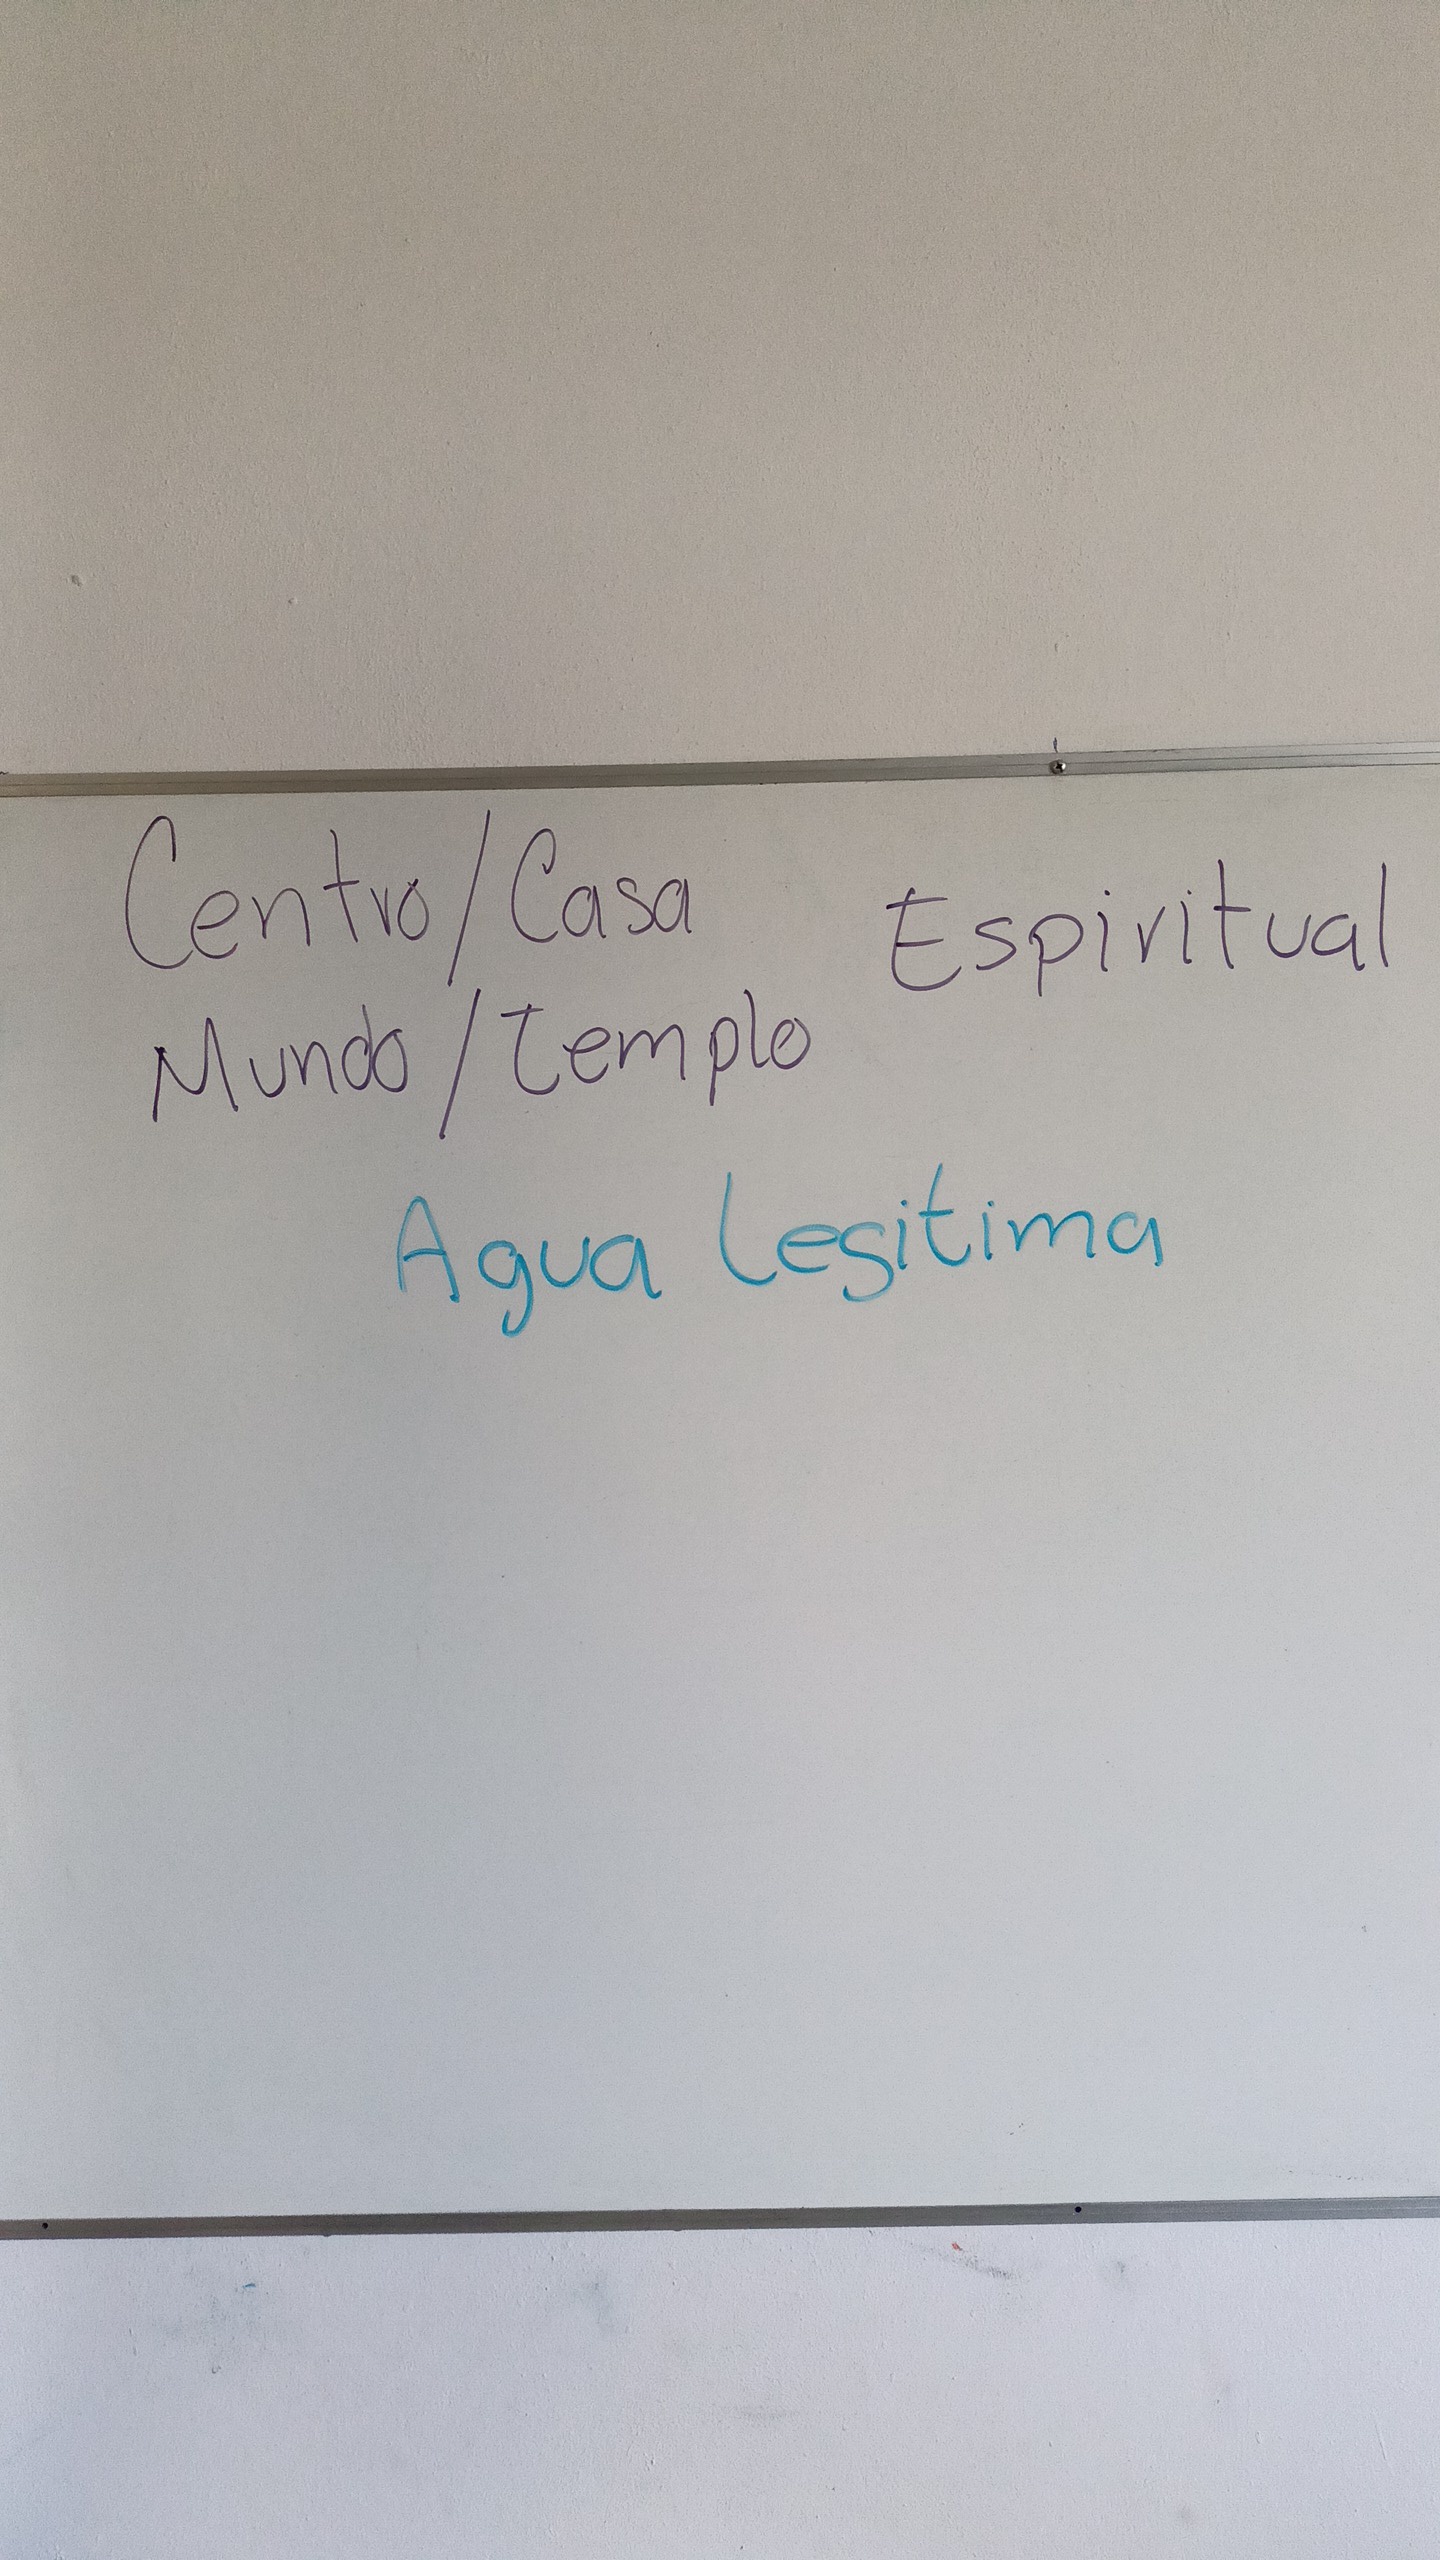 Centro/Casa Espiritual
Mundo/Templo
Agua Legitima